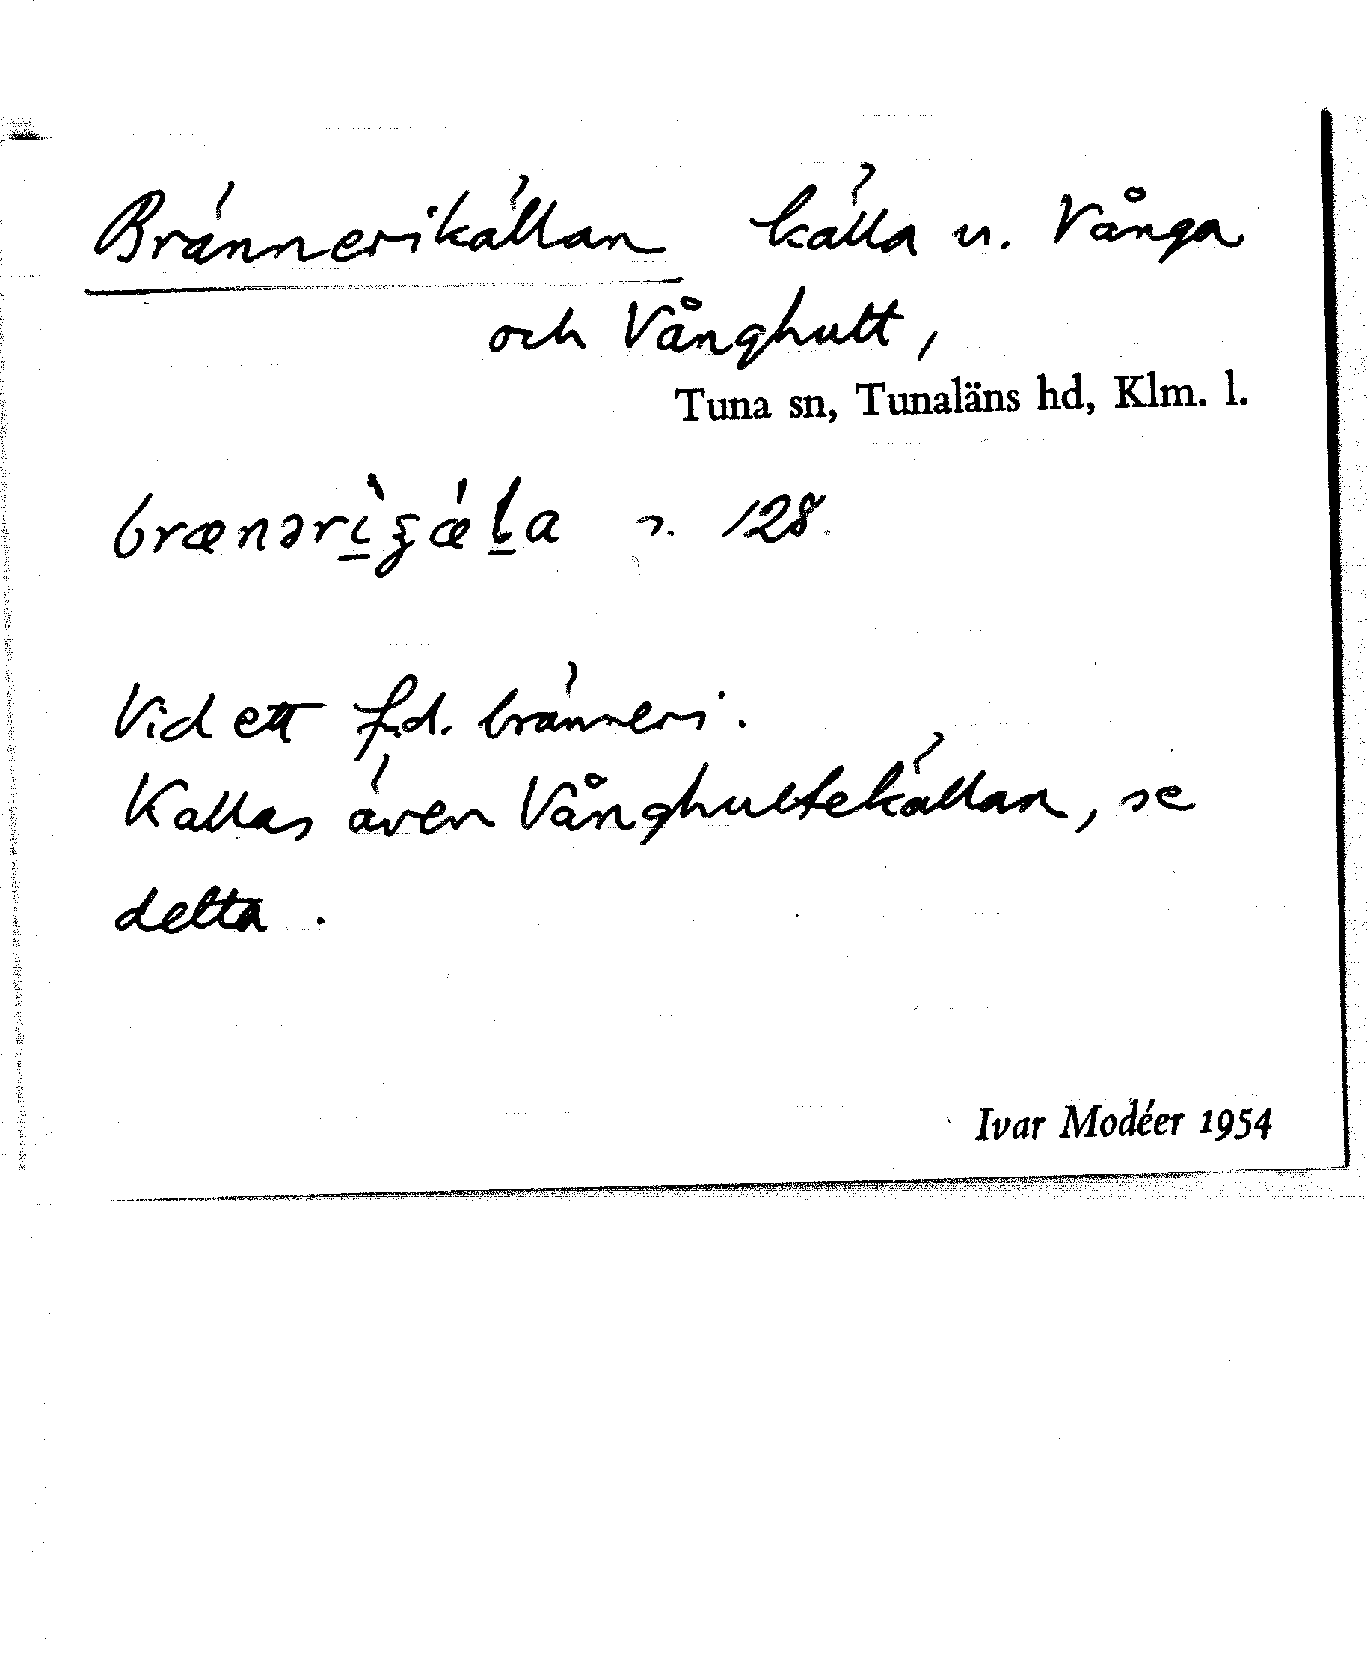 Brännerikällan källa u. Vånga
och Vånghult,
Tuna sn, Tunaläns hd, Klm. l.
128
Vid ett f.d. bränneri.
Kallas även Vånghultekällan, se
detta.
Ivar Modéer 1954